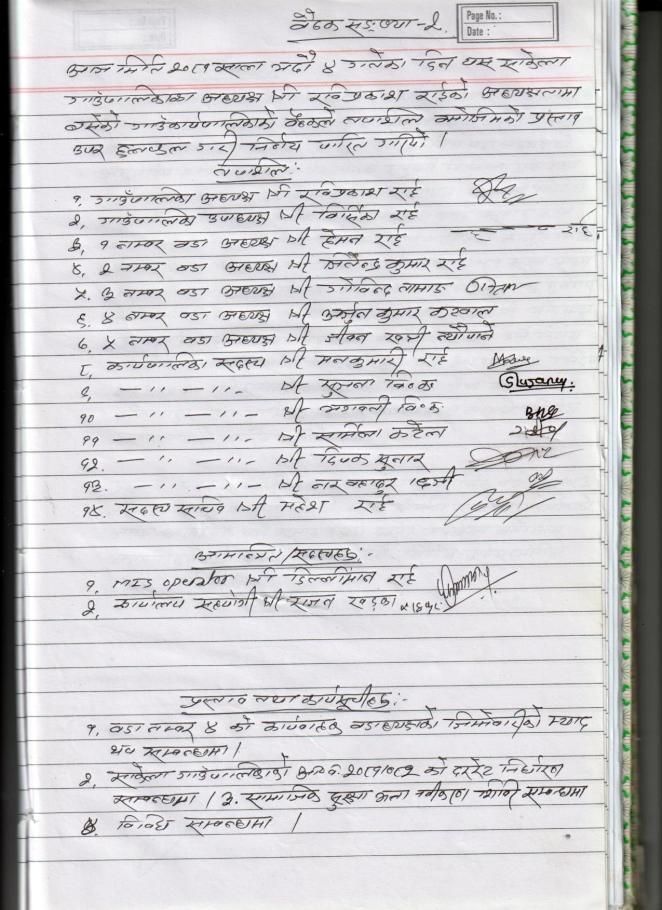 बैठक सङ्ख्या-2.
Page No.:
Date :
आज मिति २०८१ साल भदौ ४ गतेका दिन यस साकेला
गाउँपालिकाका अध्यक्ष श्री रविप्रकाश राईको अध्यक्षतामा
बसेको गाउँकार्यपालिकाको बैठकले तपाशिल बमोजिमको प्रस्ताव
उपर छलफल गरी निर्णय पारित गरियो ।
तपाशिल:-
१. गाउँपालिका अध्यक्ष श्री रविप्रकाश राई
२. गाउँपालिका उपाध्यक्ष श्री राई
३. १ नम्बर वडा अध्यक्ष श्री हेमन राई राई
४. २ नम्बर वडा अध्यक्ष श्री जितेन्द्र कुमार राई
५. ३ नम्बर वडा अध्यक्ष श्री गोविन्द तामाङ
६. ४ नम्बर वडा अध्यक्ष श्री अर्जुन कुमार
७. ५ नम्बर वडा अध्यक्ष श्री जीवन खत्री न्यौपाने
८. कार्यपालिका सदस्य श्री मनकुमारी राई
९. — '' — ''- श्री सुजना वि.क Sujana
१० — '' — ''- श्री भगवती वि.क.
११ — '' — ''- श्री सर्मिला कटेल
१२. — '' — ''- श्री दिपक सुनार
१३. — '' — ''- श्री नर बहादुर
१४. सदस्य सचिव श्री महेश राई
आमान्त्रित/सदस्यहरु:-
१. MIS operator श्री डिल्लीमान राई
२. कार्यालय सहयोगी श्री राजन खड्का
प्रस्ताव तथा कार्यसूचीहरु:-
१. वडा नम्बर ४ को कार्यवाहक वडाध्यक्षको जिम्मेवारीको म्याद
थप सम्बन्धमा ।
२. साकेला गाउँपालिकाको आ.व. २०८१/०८२ को दररेट निर्धारण
सम्बन्धमा । ३. सामाजिक सुरक्षा भत्ता नवीकरण सम्बन्धमा
४. विविध सम्बन्धमा ।